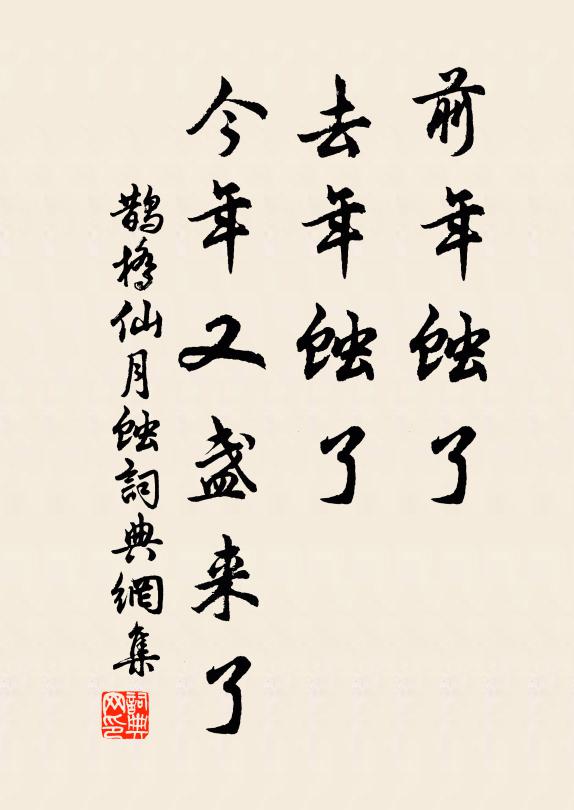 前年蝕了
去年蝕了
今年又盏来了
鵲橋仙月蝕詞典網集
詞典网印